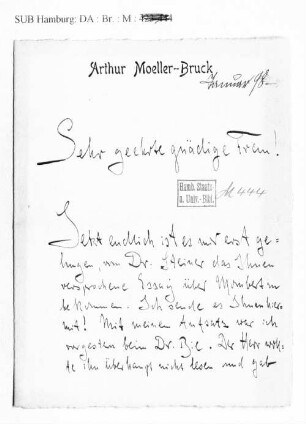 SUB Hamburg: DA : Br. : M :
Arthur Moeller-Bruck
Januar 98
Sehr geehrte gnädige Frau!
Hamb. Staats-
u. Univ.-Bibl.
M 444
Jetzt endlich ist es mir erst ge=
lungen, von Dr. Steiner das Ihnen
versprochene Essay über Mombert zu
bekommen. Ich sende es Ihnen hier
mit! Mit meinem Aufsatz war ich
vorgestern beim Dr. Bie. Der Herr woll=
te ihn überhaupt nicht lesen und gab